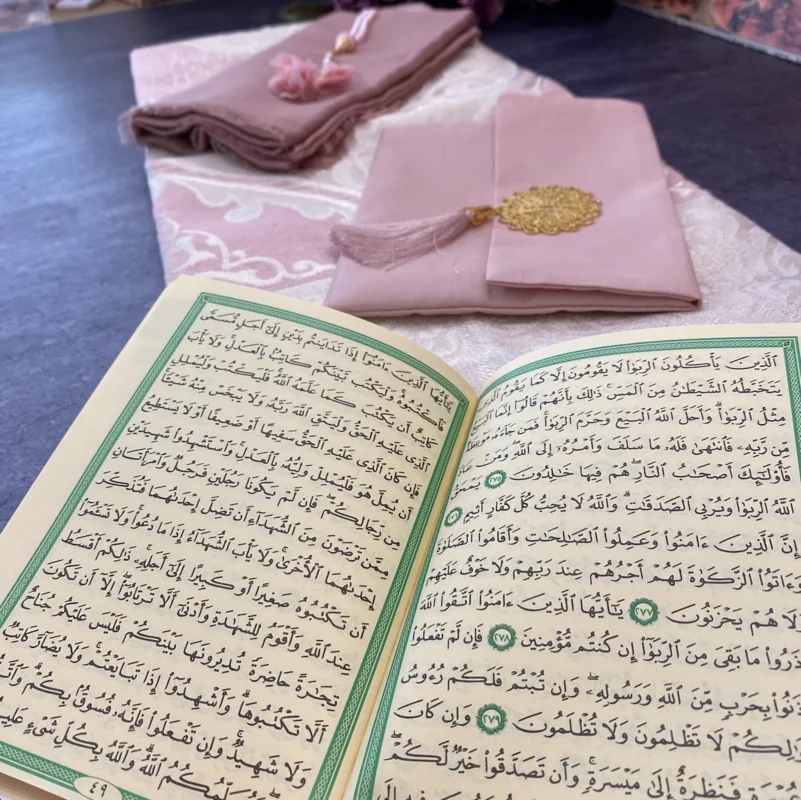 ٱلَّذِينَ يَأْكُلُونَ ٱلرِّبَوٰا۟ لَا يَقُومُونَ إِلَّا كَمَا يَقُومُ
يَتَخَبَّطُهُ ٱلشَّيْطَٰنُ مِنَ ٱلْمَسِّ ۚ ذَٰلِكَ بِأَنَّهُمْ قَالُوٓا۟ إِنَّمَا
مِثْلُ ٱلرِّبَوٰا۟ ۗ وَأَحَلَّ ٱللَّهُ ٱلْبَيْعَ وَحَرَّمَ ٱلرِّبَوٰا۟ ۚ فَمَن جَآءَهُۥ مَوْعِظَةٌ
مِّن رَّبِّهِۦ فَٱنتَهَىٰ فَلَهُۥ مَا سَلَفَ وَأَمْرُهُۥٓ إِلَى ٱللَّهِ ۖ وَمَنْ
فَأُو۟لَٰٓئِكَ أَصْحَٰبُ ٱلنَّارِ ۖ هُمْ فِيهَا خَٰلِدُونَ ٢٧٥
ٱللَّهُ ٱلرِّبَوٰا۟ وَيُرْبِى ٱلصَّدَقَٰتِ ۗ وَٱللَّهُ لَا يُحِبُّ كُلَّ كَفَّارٍ أَثِيمٍ
إِنَّ ٱلَّذِينَ ءَامَنُوا۟ وَعَمِلُوا۟ ٱلصَّٰلِحَٰتِ وَأَقَامُوا۟ ٱلصَّلَوٰةَ
وَءَاتَوُا۟ ٱلزَّكَوٰةَ لَهُمْ أَجْرُهُمْ عِندَ رَبِّهِمْ وَلَا خَوْفٌ عَلَيْهِمْ
وَلَا هُمْ يَحْزَنُونَ ٢٧٧ يَٰٓأَيُّهَا ٱلَّذِينَ ءَامَنُوا۟ ٱتَّقُوا۟ ٱللَّهَ
وَذَرُوا۟ مَا بَقِىَ مِنَ ٱلرِّبَوٰٓا۟ إِن كُنتُم مُّؤْمِنِينَ ٢٧٨ فَإِن لَّمْ تَفْعَلُوا۟
بِحَرْبٍ مِّنَ ٱللَّهِ وَرَسُولِهِۦ ۖ وَإِن تُبْتُمْ فَلَكُمْ رُءُوسُ
لَا تَظْلِمُونَ وَلَا تُظْلَمُونَ ٢٧٩ وَإِن كَانَ
فَنَظِرَةٌ إِلَىٰ مَيْسَرَةٍ ۚ وَأَن تَصَدَّقُوا۟ خَيْرٌ لَّكُمْ ۖ
يَٰٓأَيُّهَا ٱلَّذِينَ ءَامَنُوٓا۟ إِذَا تَدَايَنتُم بِدَيْنٍ إِلَىٰٓ أَجَلٍ مُّسَمًّى
فَٱكْتُبُوهُ ۚ وَلْيَكْتُب بَّيْنَكُمْ كَاتِبٌۢ بِٱلْعَدْلِ ۚ وَلَا يَأْبَ
كَاتِبٌ أَن يَكْتُبَ كَمَا عَلَّمَهُ ٱللَّهُ ۚ فَلْيَكْتُبْ وَلْيُمْلِلِ
ٱلَّذِى عَلَيْهِ ٱلْحَقُّ وَلْيَتَّقِ ٱللَّهَ رَبَّهُۥ وَلَا يَبْخَسْ مِنْهُ شَيْـًٔا ۚ
فَإِن كَانَ ٱلَّذِى عَلَيْهِ ٱلْحَقُّ سَفِيهًا أَوْ ضَعِيفًا أَوْ لَا يَسْتَطِيعُ
أَن يُمِلَّ هُوَ فَلْيُمْلِلْ وَلِيُّهُۥ بِٱلْعَدْلِ ۚ وَٱسْتَشْهِدُوا۟ شَهِيدَيْنِ
مِن رِّجَالِكُمْ ۖ فَإِن لَّمْ يَكُونَا رَجُلَيْنِ فَرَجُلٌ وَٱمْرَأَتَانِ
مِمَّن تَرْضَوْنَ مِنَ ٱلشُّهَدَآءِ أَن تَضِلَّ إِحْدَىٰهُمَا فَتُذَكِّرَ
إِحْدَىٰهُمَا ٱلْأُخْرَىٰ ۚ وَلَا يَأْبَ ٱلشُّهَدَآءُ إِذَا مَا دُعُوا۟ ۚ وَلَا تَسْـَٔمُوٓا۟
أَن تَكْتُبُوهُ صَغِيرًا أَوْ كَبِيرًا إِلَىٰٓ أَجَلِهِۦ ۚ ذَٰلِكُمْ أَقْسَطُ
عِندَ ٱللَّهِ وَأَقْوَمُ لِلشَّهَٰدَةِ وَأَدْنَىٰٓ أَلَّا تَرْتَابُوٓا۟ ۖ إِلَّآ أَن تَكُونَ
تِجَٰرَةً حَاضِرَةً تُدِيرُونَهَا بَيْنَكُمْ فَلَيْسَ عَلَيْكُمْ جُنَاحٌ
أَلَّا تَكْتُبُوهَا ۗ وَأَشْهِدُوٓا۟ إِذَا تَبَايَعْتُمْ ۚ وَلَا يُضَآرَّ كَاتِبٌ
وَلَا شَهِيدٌ ۚ وَإِن تَفْعَلُوا۟ فَإِنَّهُۥ فُسُوقٌۢ بِكُمْ ۗ وَٱتَّقُوا۟
ٱللَّهُ ۗ وَٱللَّهُ بِكُلِّ شَىْءٍ عَلِيمٌ
٤٩